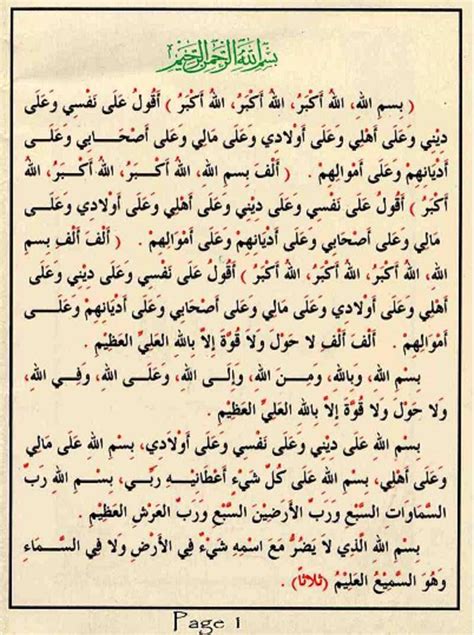 بِسْمِ اللهِ الرَّحْمَنِ الرَّحِيْمِ
( بِسمِ اللهِ، اللهُ أَكْبَرُ، اللهُ أَكْبَرُ، اللهُ أَكْبَرُ ) أَقُولُ عَلَى نَفْسِي وَعَلَى
دِيْنِي وَعَلَى أَهْلِي وَعَلَى أَوْلادِي وَعَلَى مَالِي وَعَلَى أَصْحَابِي وَعَلَى
أَدْيَانِهِمْ وَعَلَى أَمْوَالِهِمْ . ( أَلْفَ بِسمِ اللهِ، اللهُ أَكْبَرُ، اللهُ أَكْبَرُ، اللهُ
أَكْبَرُ ) أَقُولُ عَلَى نَفْسِي وَعَلَى دِيْنِي وَعَلَى أَهْلِي وَعَلَى أَوْلادِي وَعَلَى
مَالِي وَعَلَى أَصْحَابِي وَعَلَى أَدْيَانِهِمْ وَعَلَى أَمْوَالِهِمْ . ( أَلْفَ أَلْفِ بِسمِ
اللهِ، اللهُ أَكْبَرُ، اللهُ أَكْبَرُ، اللهُ أَكْبَرُ ) أَقُولُ عَلَى نَفْسِي وَعَلَى دِيْنِي وَعَلَى
أَهْلِي وَعَلَى أَوْلادِي وَعَلَى مَالِي وَعَلَى أَصْحَابِي وَعَلَى أَدْيَانِهِمْ وَعَلَى
أَمْوَالِهِمْ . أَلْفَ أَلْفِ لا حَوْلَ وَلا قُوَّةَ إِلاَّ بِاللهِ العَلِيِّ العَظِيْمِ .
بِسمِ اللهِ، وَبِاللهِ، وَمِنَ اللهِ، وَإِلَى اللهِ، وَعَلَى اللهِ، وَفِي اللهِ،
وَلا حَوْلَ وَلا قُوَّةَ إِلاَّ بِاللهِ العَلِيِّ العَظِيْمِ .
بِسْمِ اللهِ عَلَى دِيْنِي وَعَلَى نَفْسِي وَعَلَى أَوْلادِي، بِسْمِ اللهِ عَلَى مَالِي
وَعَلَى أَهْلِي، بِسمِ اللهِ عَلَى كُلِّ شَيْءٍ أَعْطَانِيْهِ رَبِّي، بِسمِ اللهِ رَبِّ
السَّمَاوَاتِ السَّبْعِ وَرَبِّ الأَرَضِيْنَ السَّبْعِ وَرَبِّ العَرْشِ العَظِيْمِ .
بِسمِ اللهِ الَّذِي لا يَضُرُّ مَعَ اسْمِهِ شَيْءٌ فِي الأَرْضِ وَلا فِي السَّمَاءِ
وَهُوَ السَّمِيعُ العَلِيْمُ (ثَلاثاً) .
Page 1